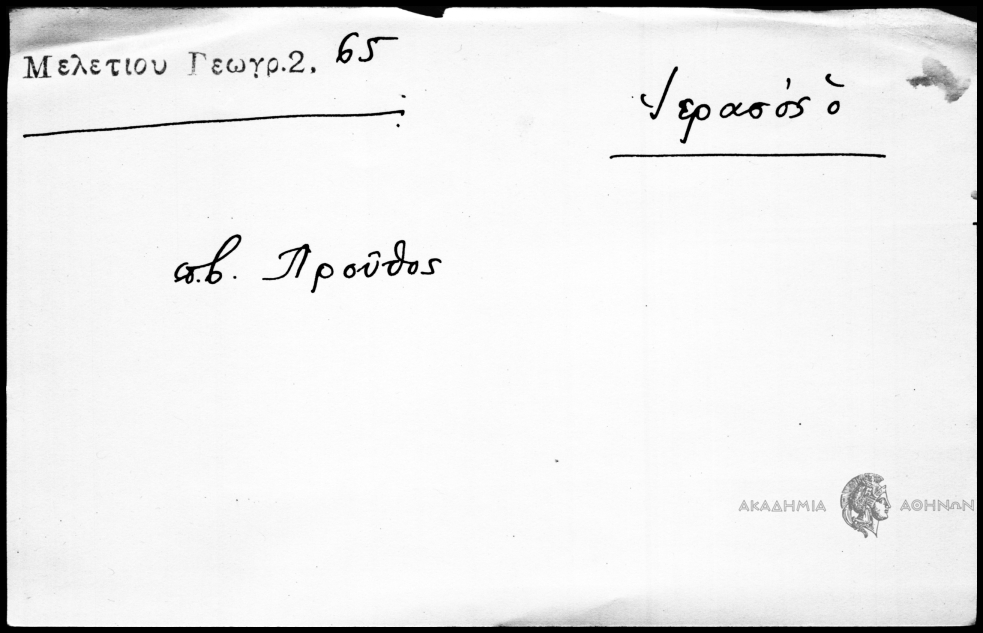 Μελετίου Γεωγρ.2, 65
Ἱερασός ὁ
πβ. Προῦθος
ΑΚΑΔΗΜΙΑ ΑΘΗΝΩΝ